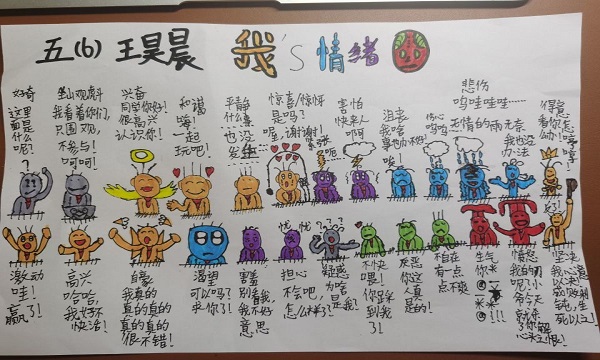 五(6) 王昊晨 我's 情绪
好奇
这里
面是
什么
呢?
?
坐山观虎斗
我看着你们,
只围观,
不参与!
呵呵!
兴奋
同学你好!
很高兴
认识你!
和谐
嗨!
一起
玩吧!
平静
什么事
也没
发生……
惊喜/惊讶
是吗?
喔,谢谢!
紧张
呃…
害怕
快来人
啊
沮丧
我啥
事也办不好
唉!
伤心
呜呜
悲伤
呜哇哇哇……
无情的雨
无奈
我也没
办法
得意
看你怎
么办!
哼哼!
激动
哇!
赢了!
高兴
哈哈,
我好不
快活!
自豪
我真的
真的真的
真的真的
很不错!
渴望
可以吗?
求你了!
害羞
别看我,
我不好
意思
忧 忧
担心
不会吧,
怎么样了?
? ? ? ?
疑惑
为啥
是我?
不快
喂!
你踩
到我
了!
厌恶
你这
人真
是的!
不自在
有一
点
不爽
生气
你
!!!
愤怒
我的
呢?小
命今天
就杀
了你解
心头之恨!
好!
坚决
我心
以决
死
以